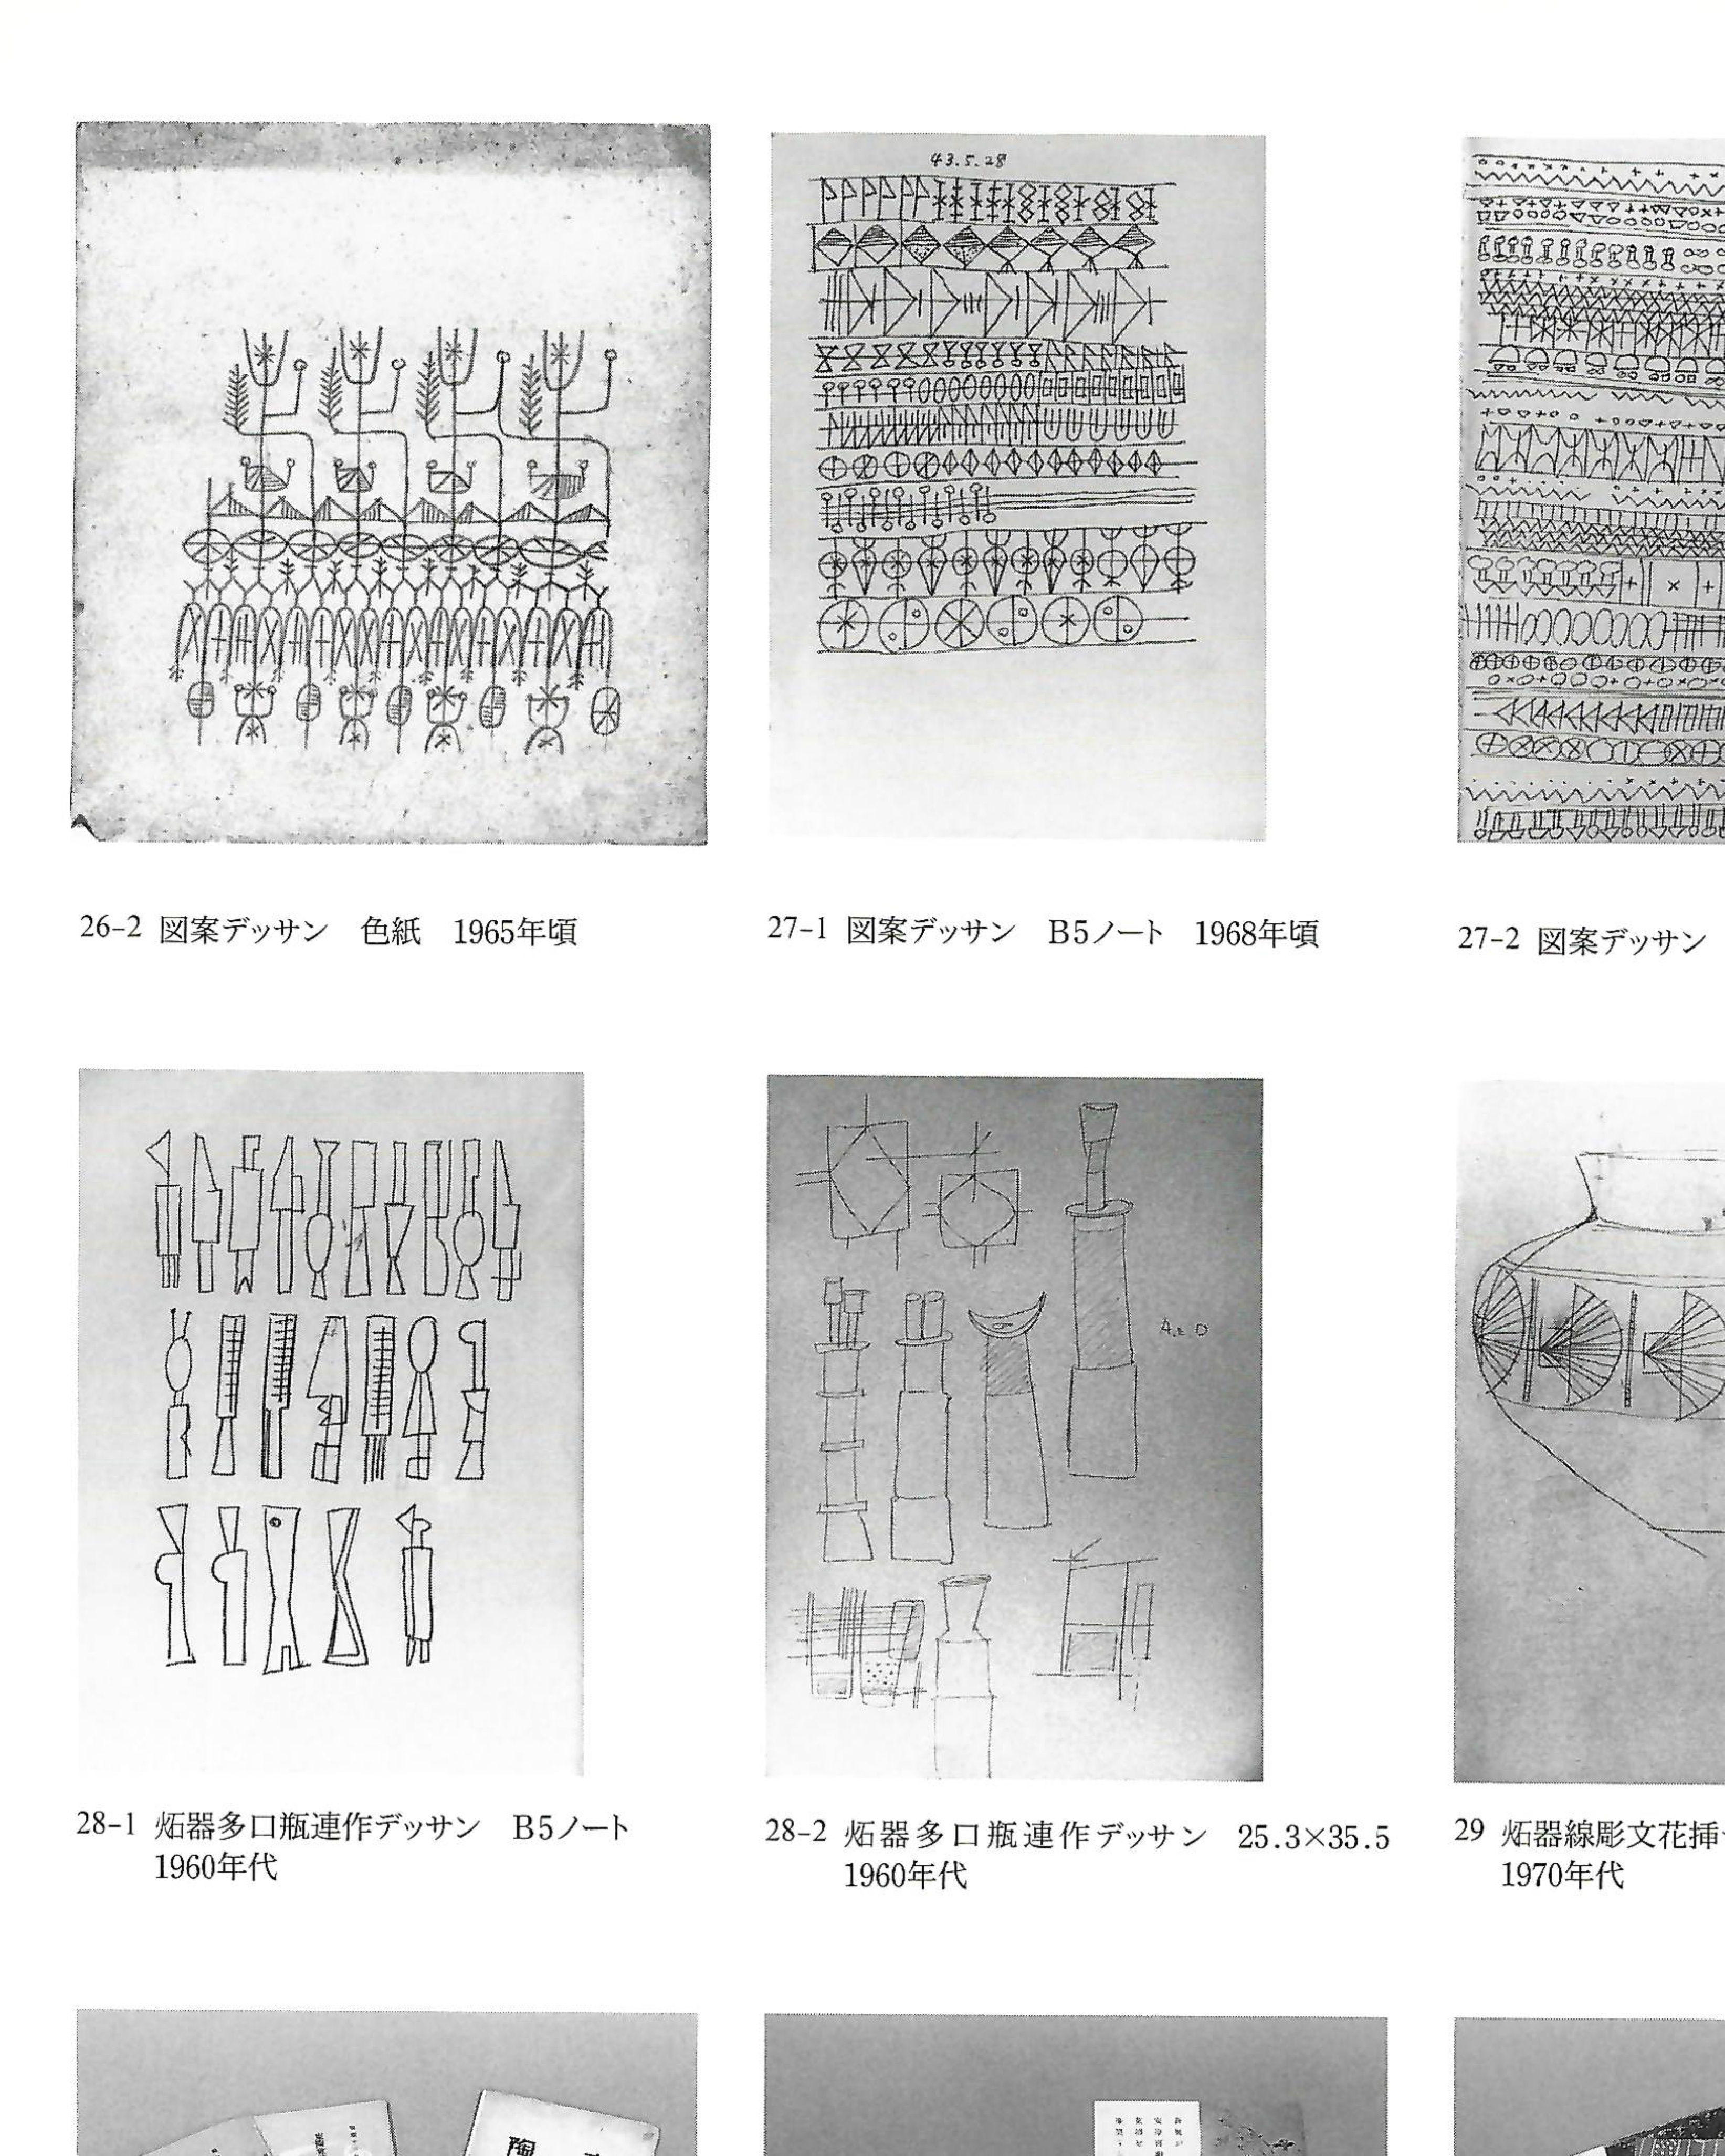 43.5.28
26-2 図案デッサン　色紙　1965年頃
27-1 図案デッサン　B5ノート　1968年頃
27-2 図案デッサン
28-1 炻器多口瓶連作デッサン　B5ノート
1960年代
28-2 炻器多口瓶連作デッサン　25.3×35.5
1960年代
29 炻器線彫文花挿
1970年代
陶